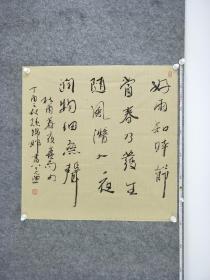 好雨知時節
當春乃發生
随風潜入夜
潤物細無聲
杜甫春夜喜雨
丁酉之秋